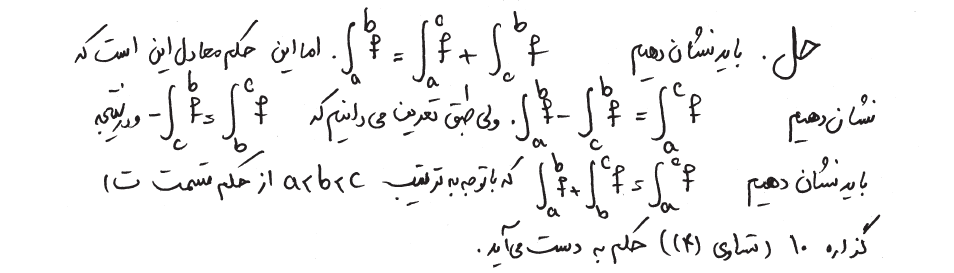 حل. باید نشان دهیم $\int_a^b f = \int_a^c f + \int_c^b f$. اما این حکم معادل این است که
نشان دهیم $\int_a^b f - \int_c^b f = \int_a^c f$. ولی طبق تعریف می دانیم که $-\int_c^b f = \int_b^c f$ و در نتیجه
باید نشان دهیم $\int_a^b f + \int_b^c f = \int_a^c f$ که با توجه به ترتیب a < b < c از حکم قسمت ت)
گزاره ۱۰ (تساوی (۴)) حکم به دست می‌آید.